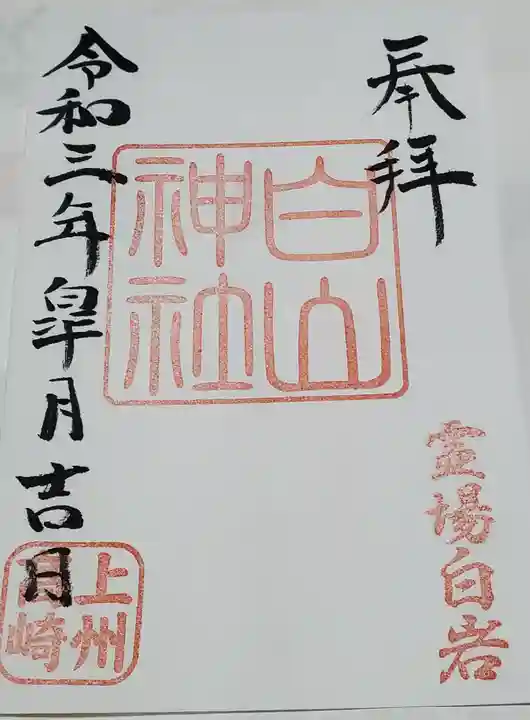 奉拝
白山
神社
霊場白岩
令和三年皐月吉日
上州
高崎